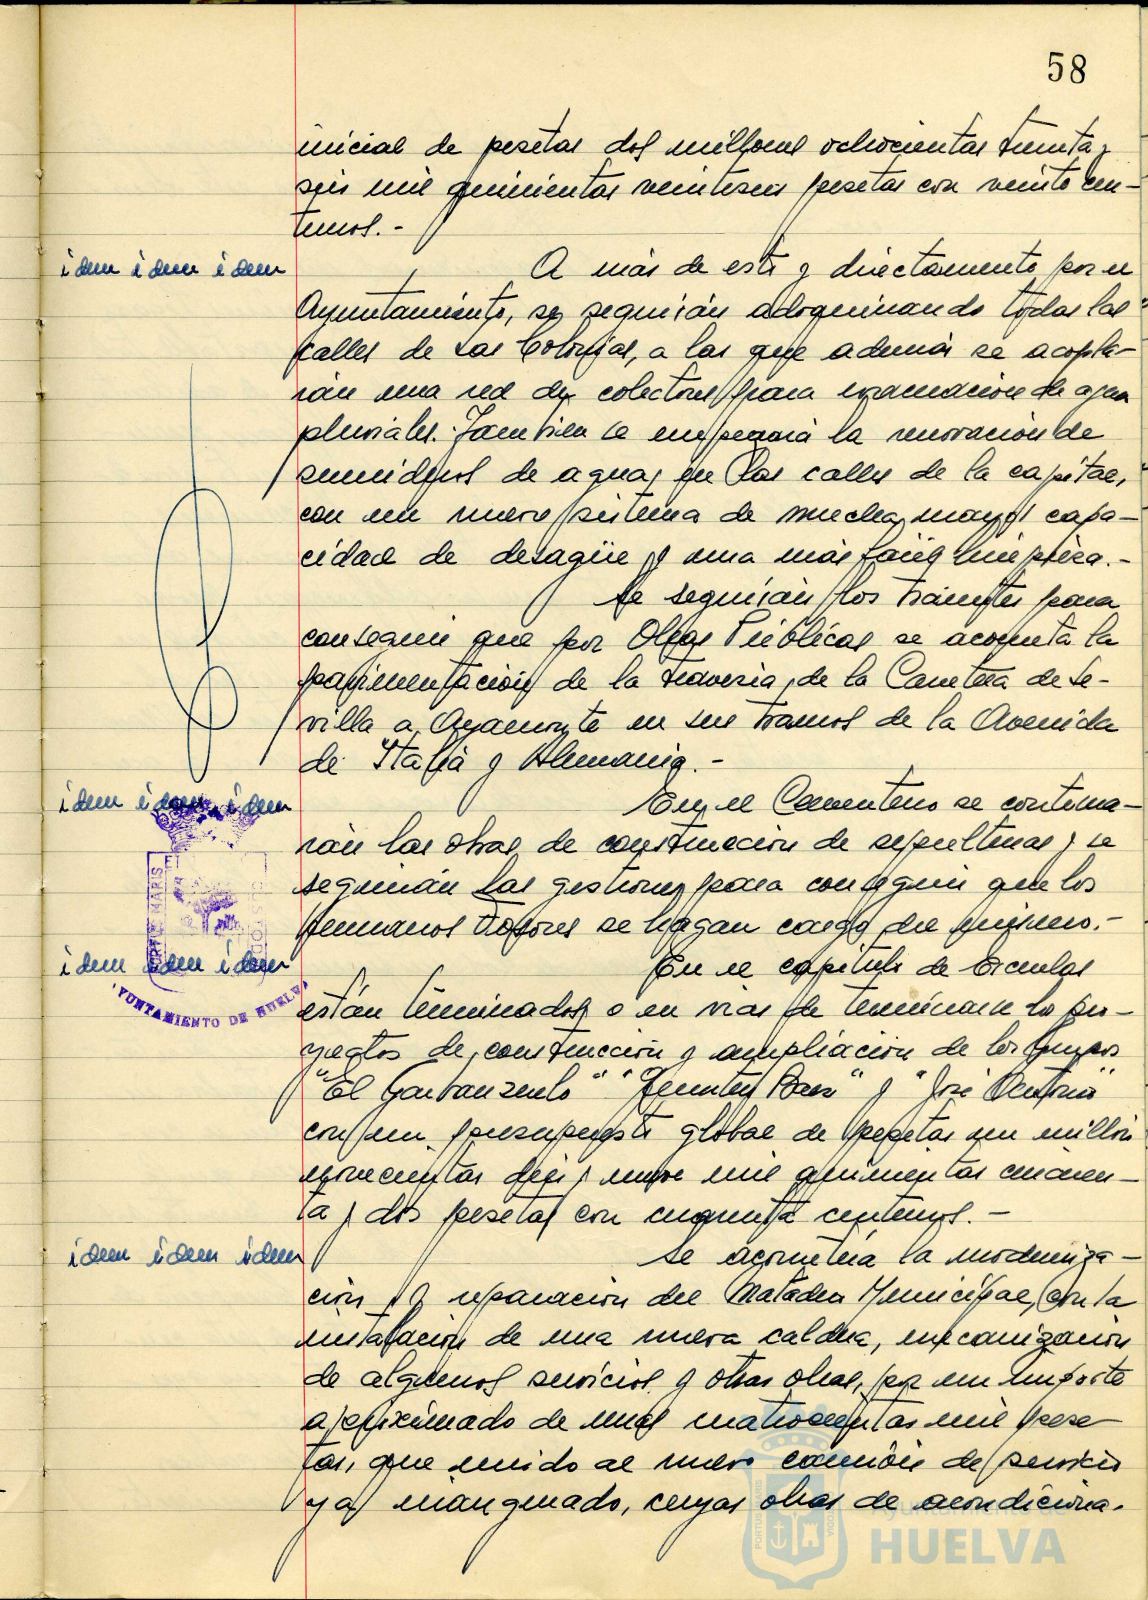 58
inicial de pesetas dos millones ochocientas treinta y
seis mil quinientas veintiseis pesetas con veinte cen-
timos.-
idem idem idem
A más de esto y directamente por el
Ayuntamiento, se seguirán adoquinando todas las
calles de las Colonias, a las que además se acopla-
rán una red de colectores para evacuación de aguas
pluviales. También se empezará la renovación de
sumideros de aguas en las calles de la capital,
con un nuevo sistema de mucha mayor capa-
cidad de desagüe y una más fácil limpieza.-
Se seguirán los trámites para
conseguir que por Obras Públicas se acometa la
pavimentación de la travesía de la Carretera de Se-
villa a Ayamonte en sus tramos de la Avenida
de Italia y Alemania.-
idem idem idem
En el Cementerio se continua-
rán las obras de construcción de sepulturas y se
seguirán las gestiones para conseguir que los
Hermanos Fosores se hagan cargo del mismo.-
idem idem idem
En el capítulo de Escuelas
están terminados o en vías de terminarse los pro-
yectos de construcción y ampliación de los Grupos
"El Garbanzuelo" "Quintero Baez" y "José Antonio"
con un presupuesto global de pesetas un millón
novecientas diez y nueve mil quinientas cincuen-
ta y dos pesetas con cincuenta centimos.-
idem idem idem
Se acometerá la moderniza-
ción y reparación del Matadero Municipal, con la
instalación de una nueva caldera, mecanización
de algunos servicios y otras obras, por un importe
aproximado de unas cuatrocientas mil pese-
tas, que unido al nuevo camión de servicio
ya inaugurado, cuyas obras de acondiciona-
AYUNTAMIENTO DE HUELVA
Ayuntamiento de
HUELVA